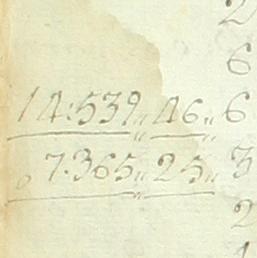 2
6
14:539,,46,,6
07.365,,25,,3
2